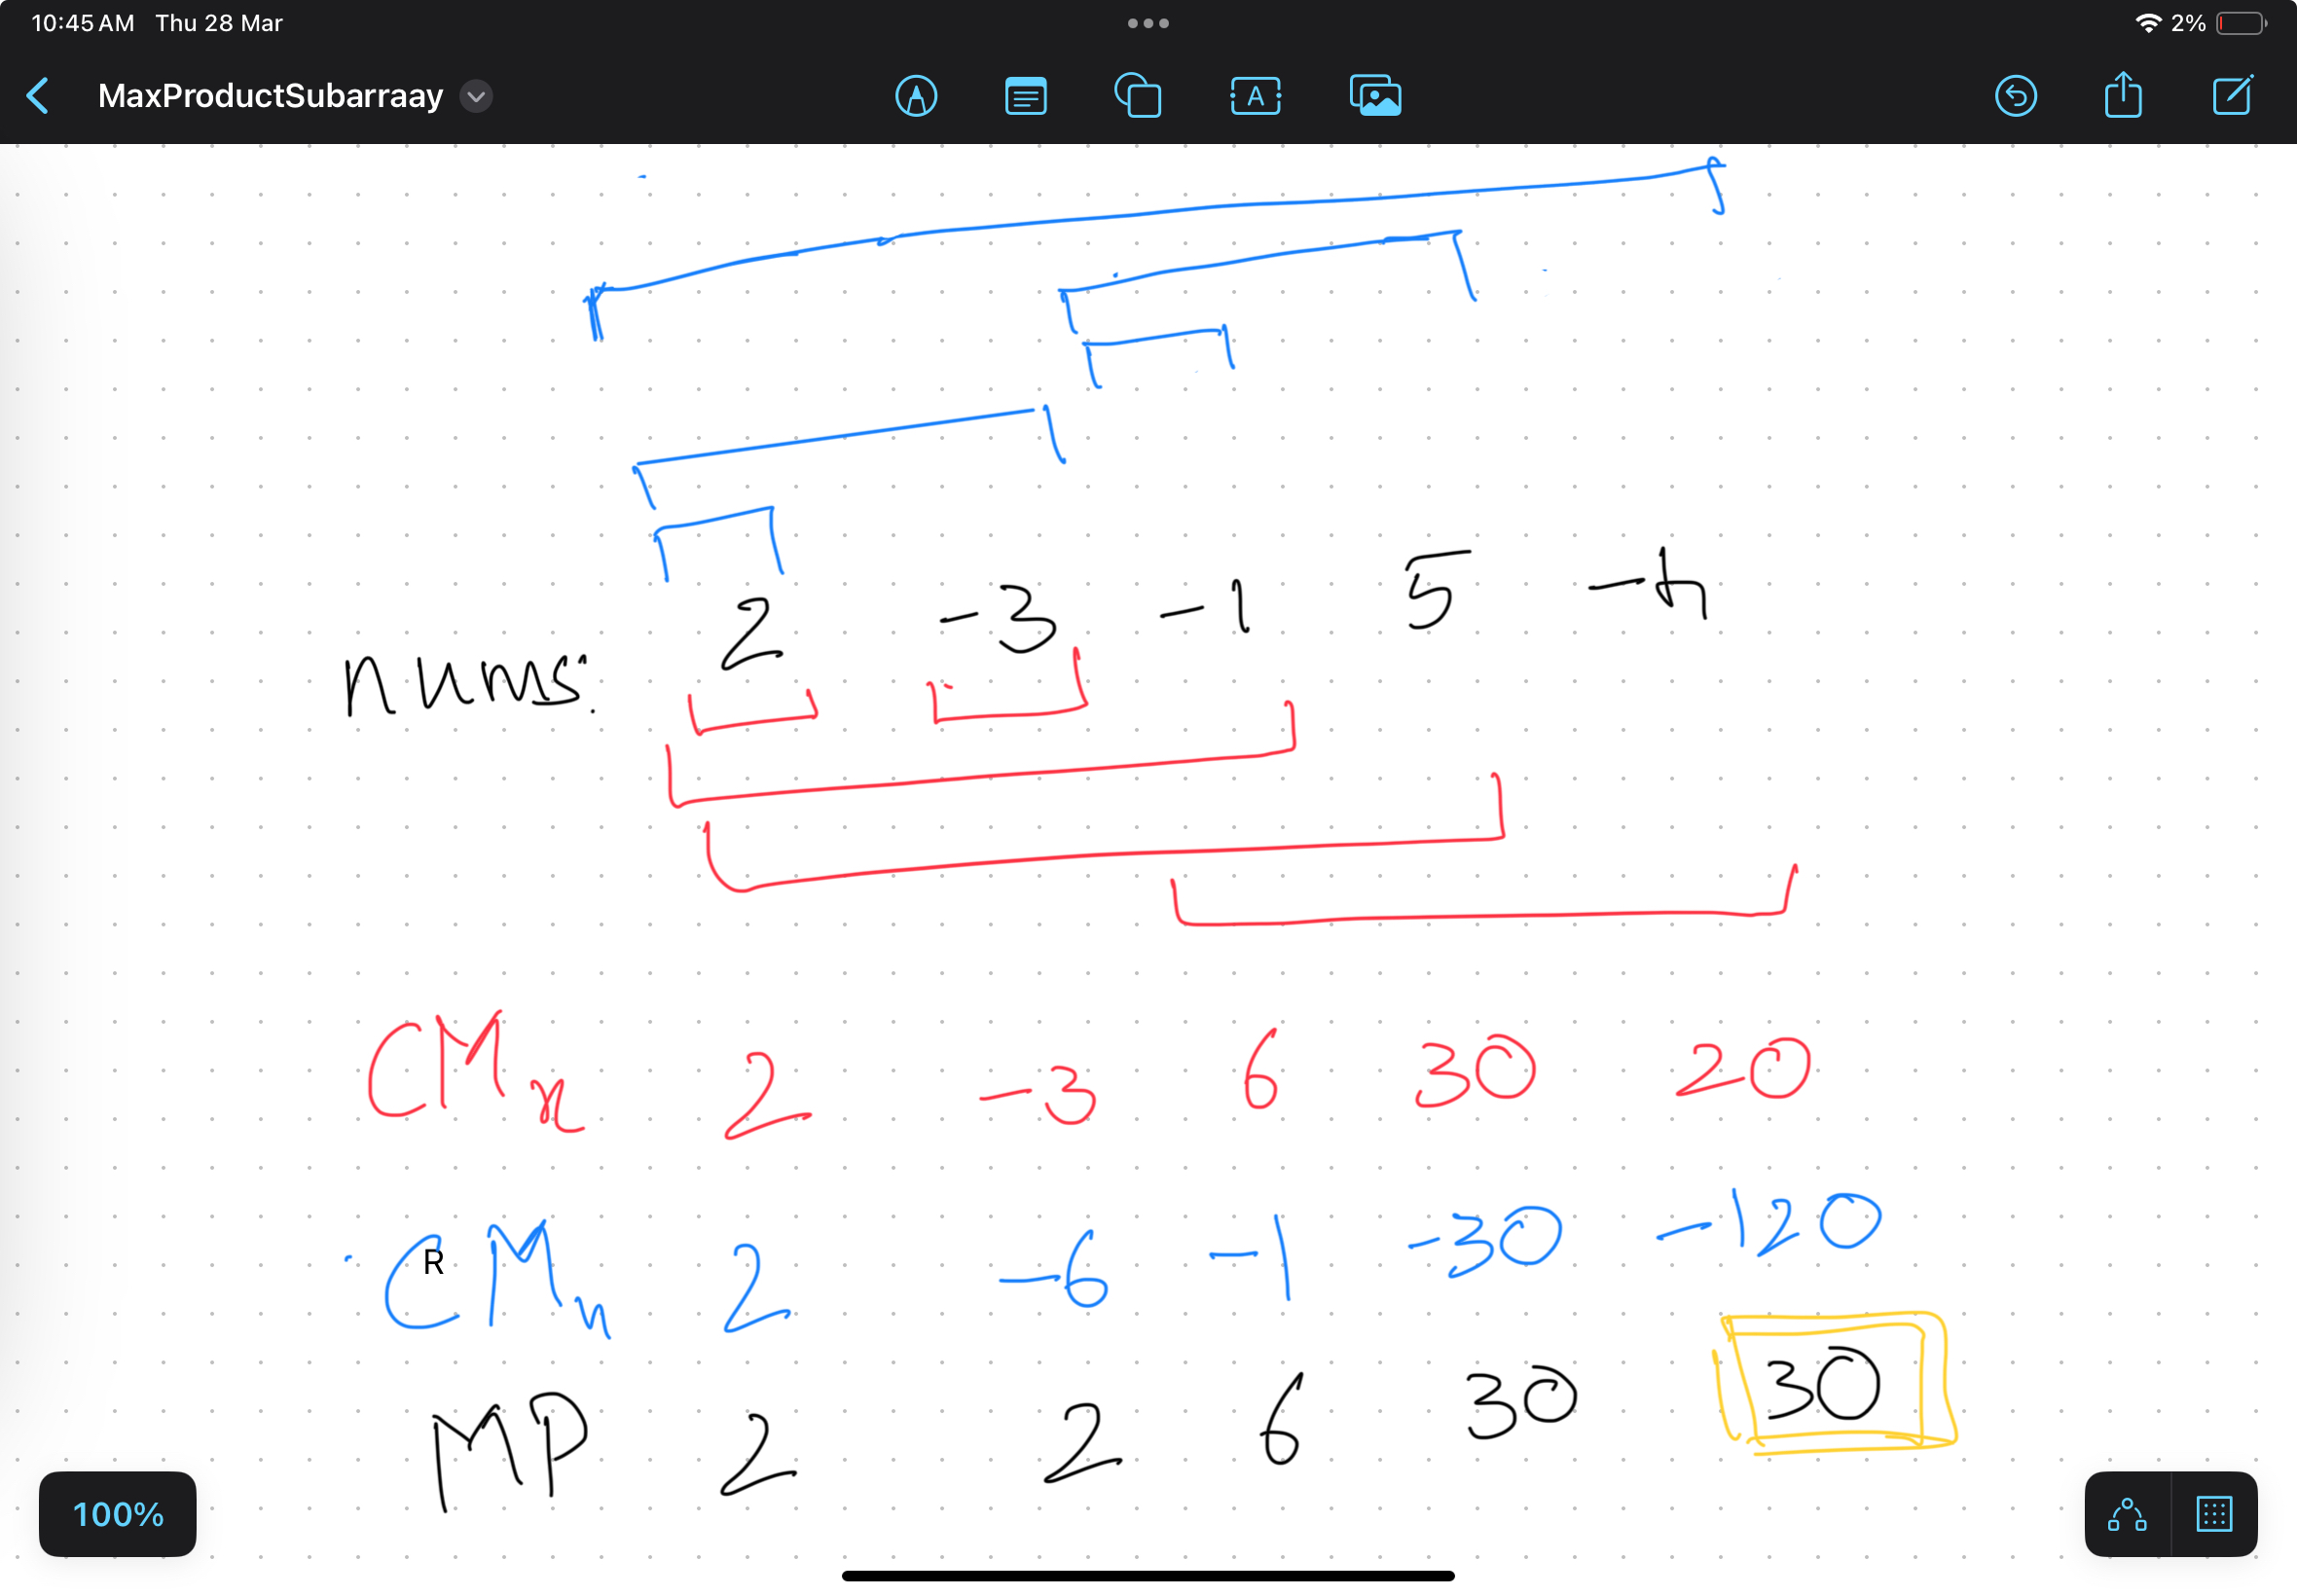 10:45 AM Thu 28 Mar 2%
MaxProductSubarraay
A
nums: 2 -3 -1 5 -4
CMx 2 -3 6 30 20
CMn 2 -6 -1 -30 -120
R
MP 2 2 6 30 30
100%